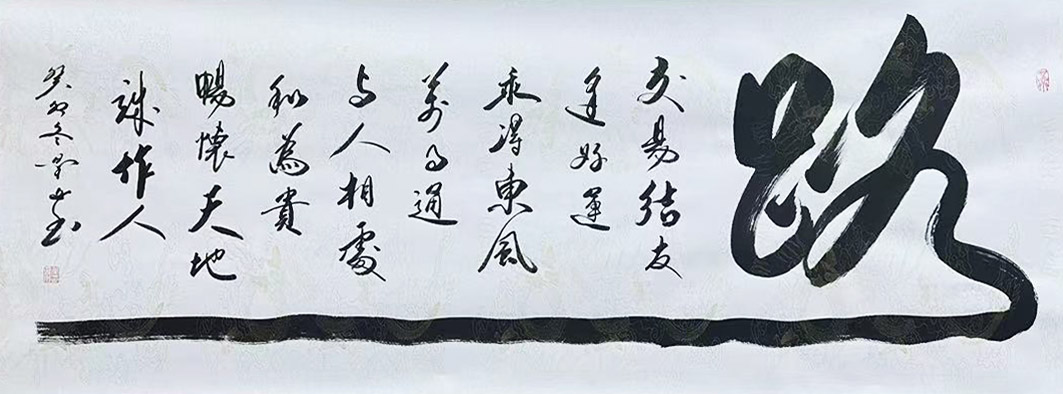 路
交易結友
逢好運
乘得東風
萬事通
与人相處
和為貴
暢懷天地
誠作人
癸卯冬